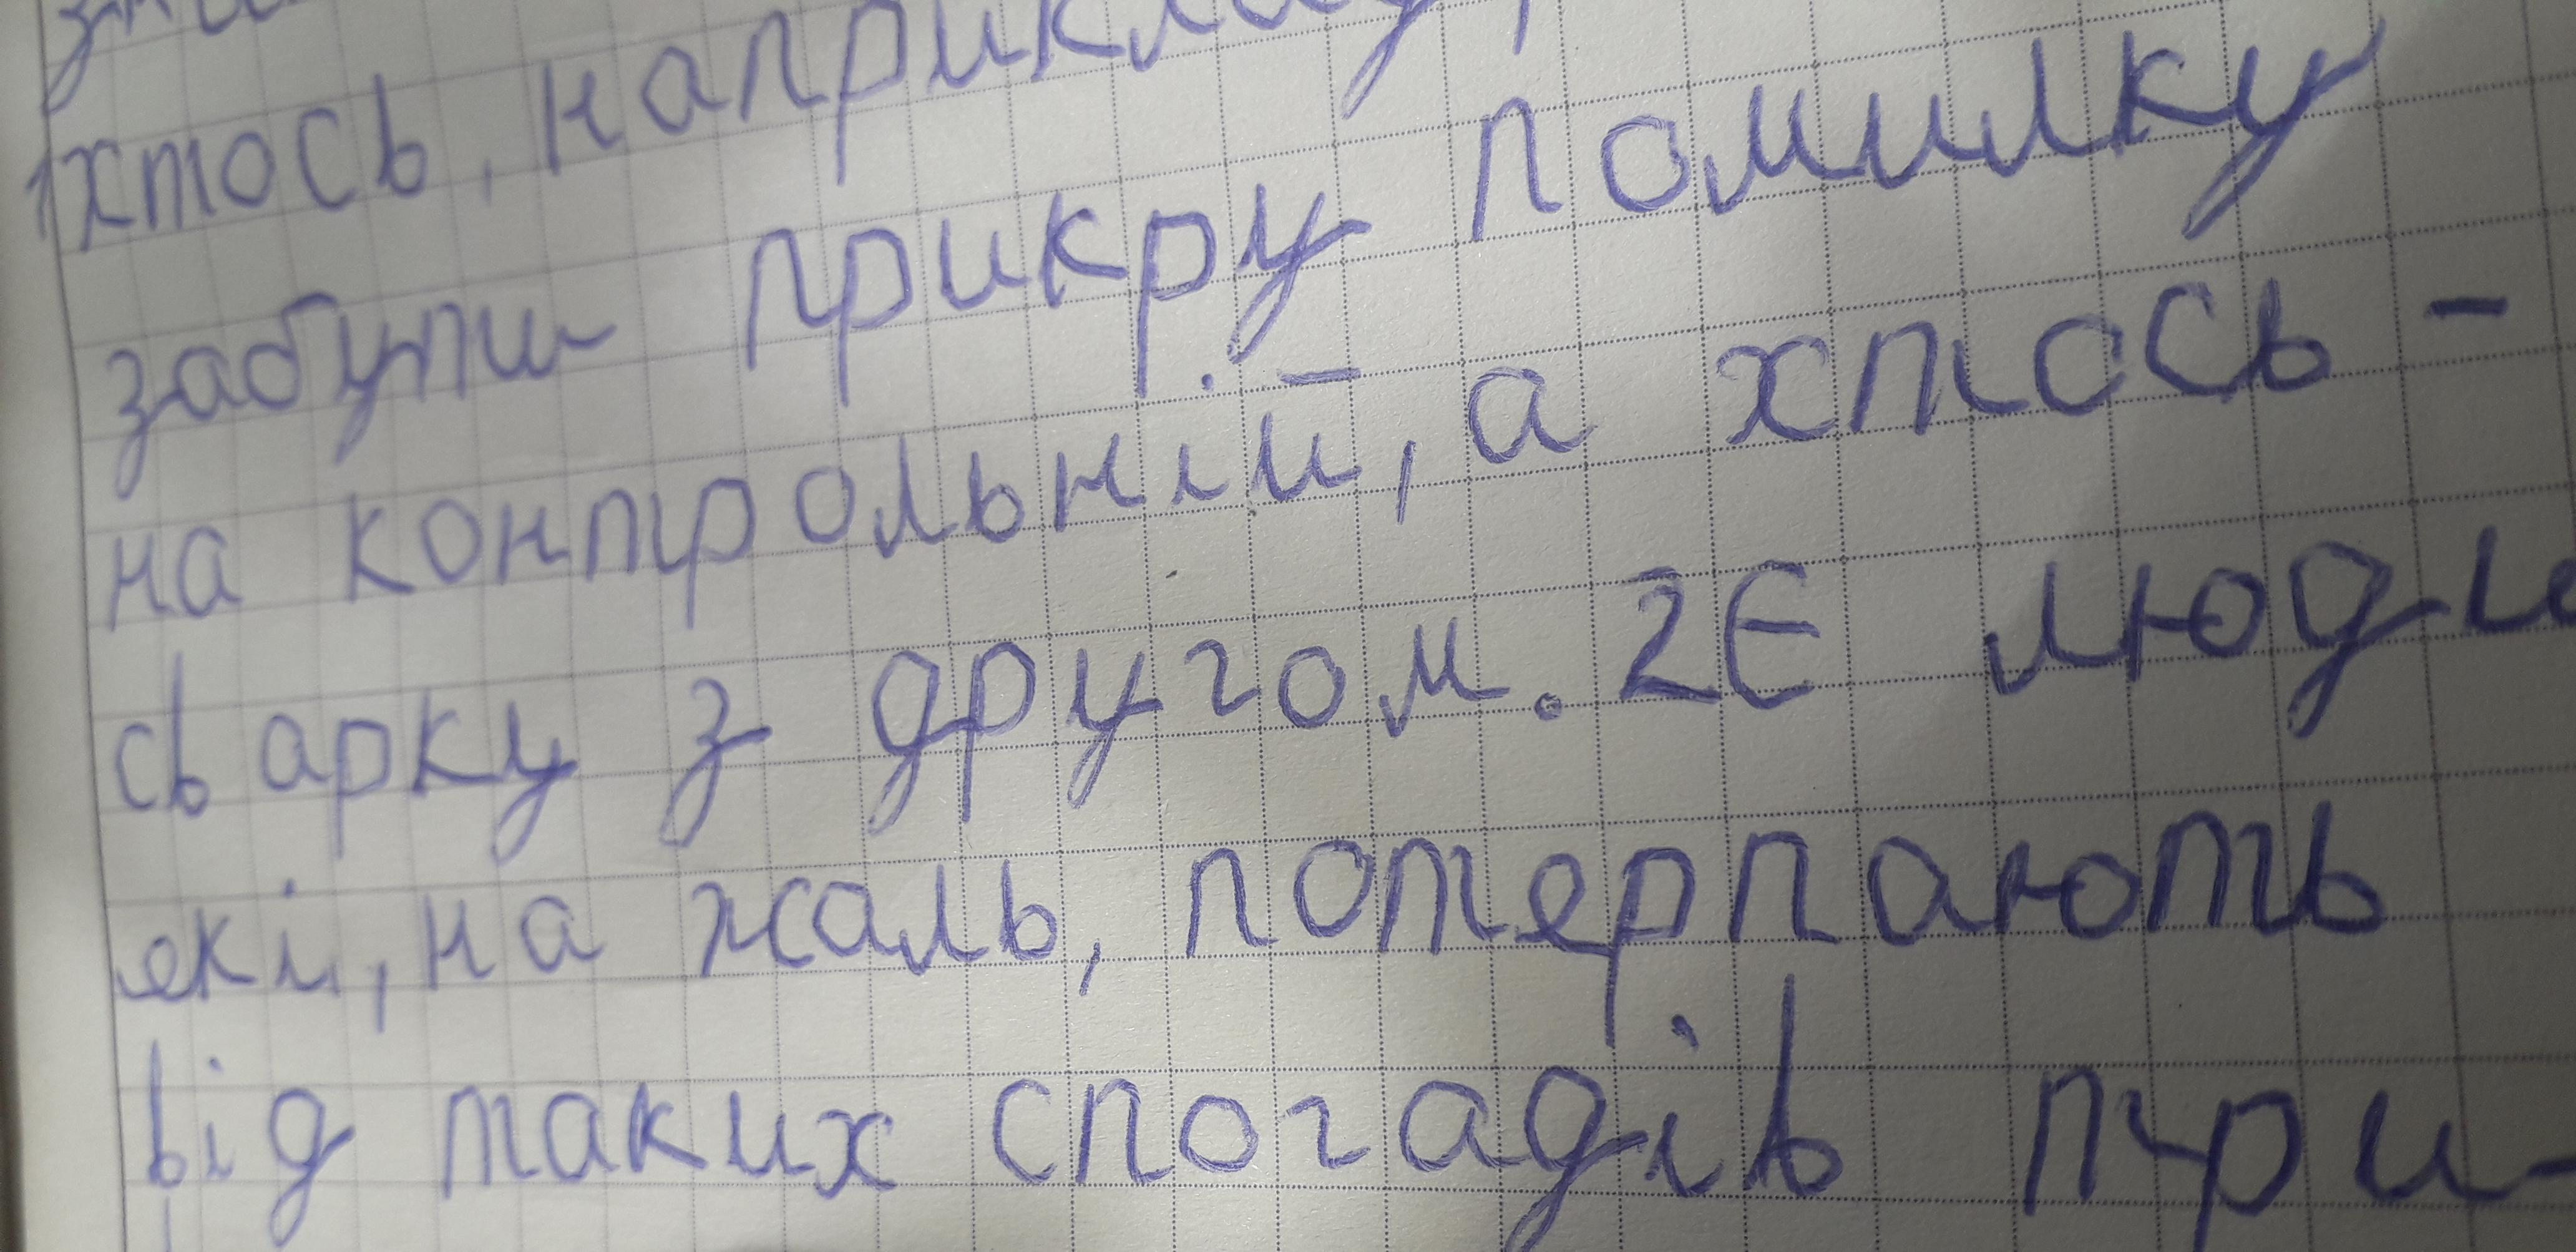 хтось, наприклад,
забути прикру помилку
на контрольній, а хтось -
сварку з другом. 2Є люди
які, на жаль, потерпають
від таких спогадів при-